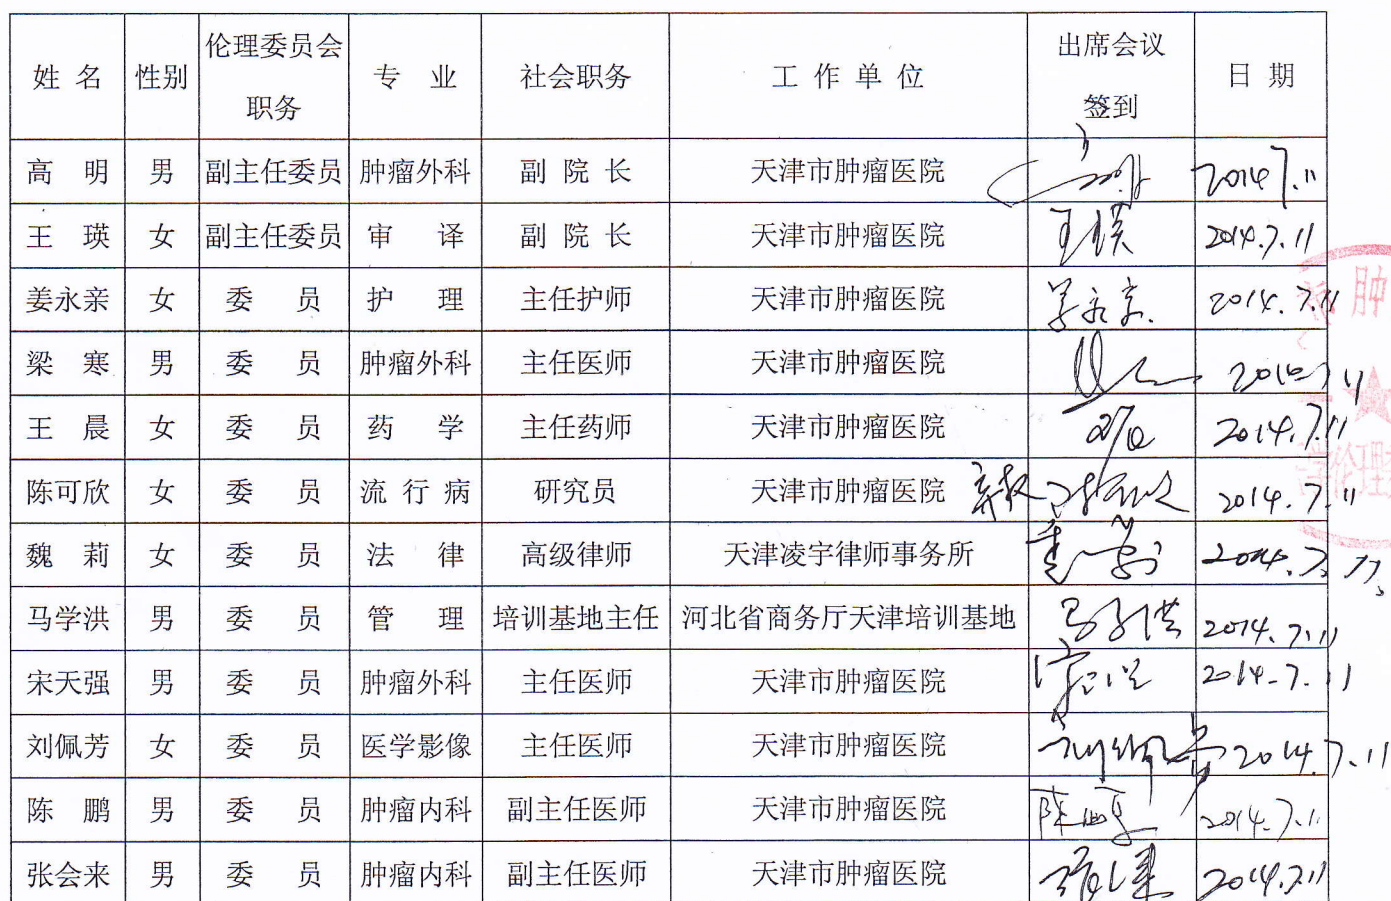 姓 名 性别 伦理委员会职务 专 业 社会职务 工 作 单 位 出席会议签到 日 期
高 明 男 副主任委员 肿瘤外科 副 院 长 天津市肿瘤医院 2014 7.11
王 瑛 女 副主任委员 审 译 副 院 长 天津市肿瘤医院 王瑛 2014.7.11
姜永亲 女 委 员 护 理 主任护师 天津市肿瘤医院 姜永亲 2014.7.11
梁 寒 男 委 员 肿瘤外科 主任医师 天津市肿瘤医院
王 晨 女 委 员 药 学 主任药师 天津市肿瘤医院 2014.7.11
陈可欣 女 委 员 流 行 病 研究员 天津市肿瘤医院 2014.7.11
魏 莉 女 委 员 法 律 高级律师 天津凌宇律师事务所 2014.7.11
马学洪 男 委 员 管 理 培训基地主任 河北省商务厅天津培训基地 马学洪 2014.7.11
宋天强 男 委 员 肿瘤外科 主任医师 天津市肿瘤医院 2014.7.11
刘佩芳 女 委 员 医学影像 主任医师 天津市肿瘤医院 刘佩芳 2014.7.11
陈 鹏 男 委 员 肿瘤内科 副主任医师 天津市肿瘤医院 陈鹏 2014.7.11
张会来 男 委 员 肿瘤内科 副主任医师 天津市肿瘤医院 张会来 2014.7.11
肿
学伦理